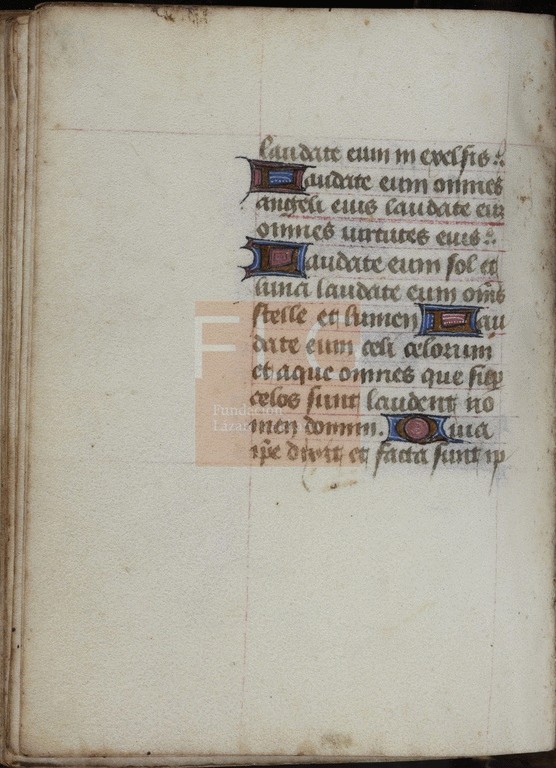 laudate eum in excelsis:
Laudate eum omnes
angeli eius laudate eū
omnes virtutes eius:
Laudate eum sol et
luna laudate eum om̄s
stelle et lumen Lau
date eum celi celorum
et aque omnes que sup̄
celos sunt laudent no
men domini. Quia
ip̄e dixit et facta sunt ip̄
Fundación